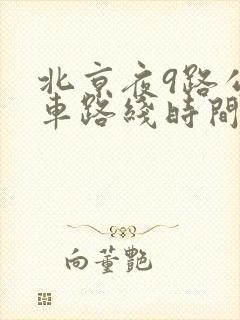 北京夜9路公
車路綫時間
向董艷